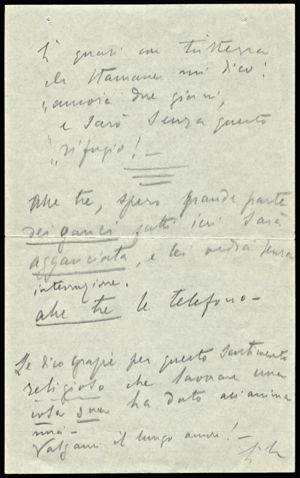 È quasi con tristezza
che stamane mi dico:
"ancora due giorni,
e sarò senza questo
"rifugio! —
Alle tre, spero grande parte
dei ganci fatti ieri sarà
agganciata, e lei vedrà senza
interruzione.
alle tre le telefono —
Le dico grazie per questo sentimento
religioso che lavorare una
cosa sua ha dato all'anima
mia.
Valgami il lungo amore! —